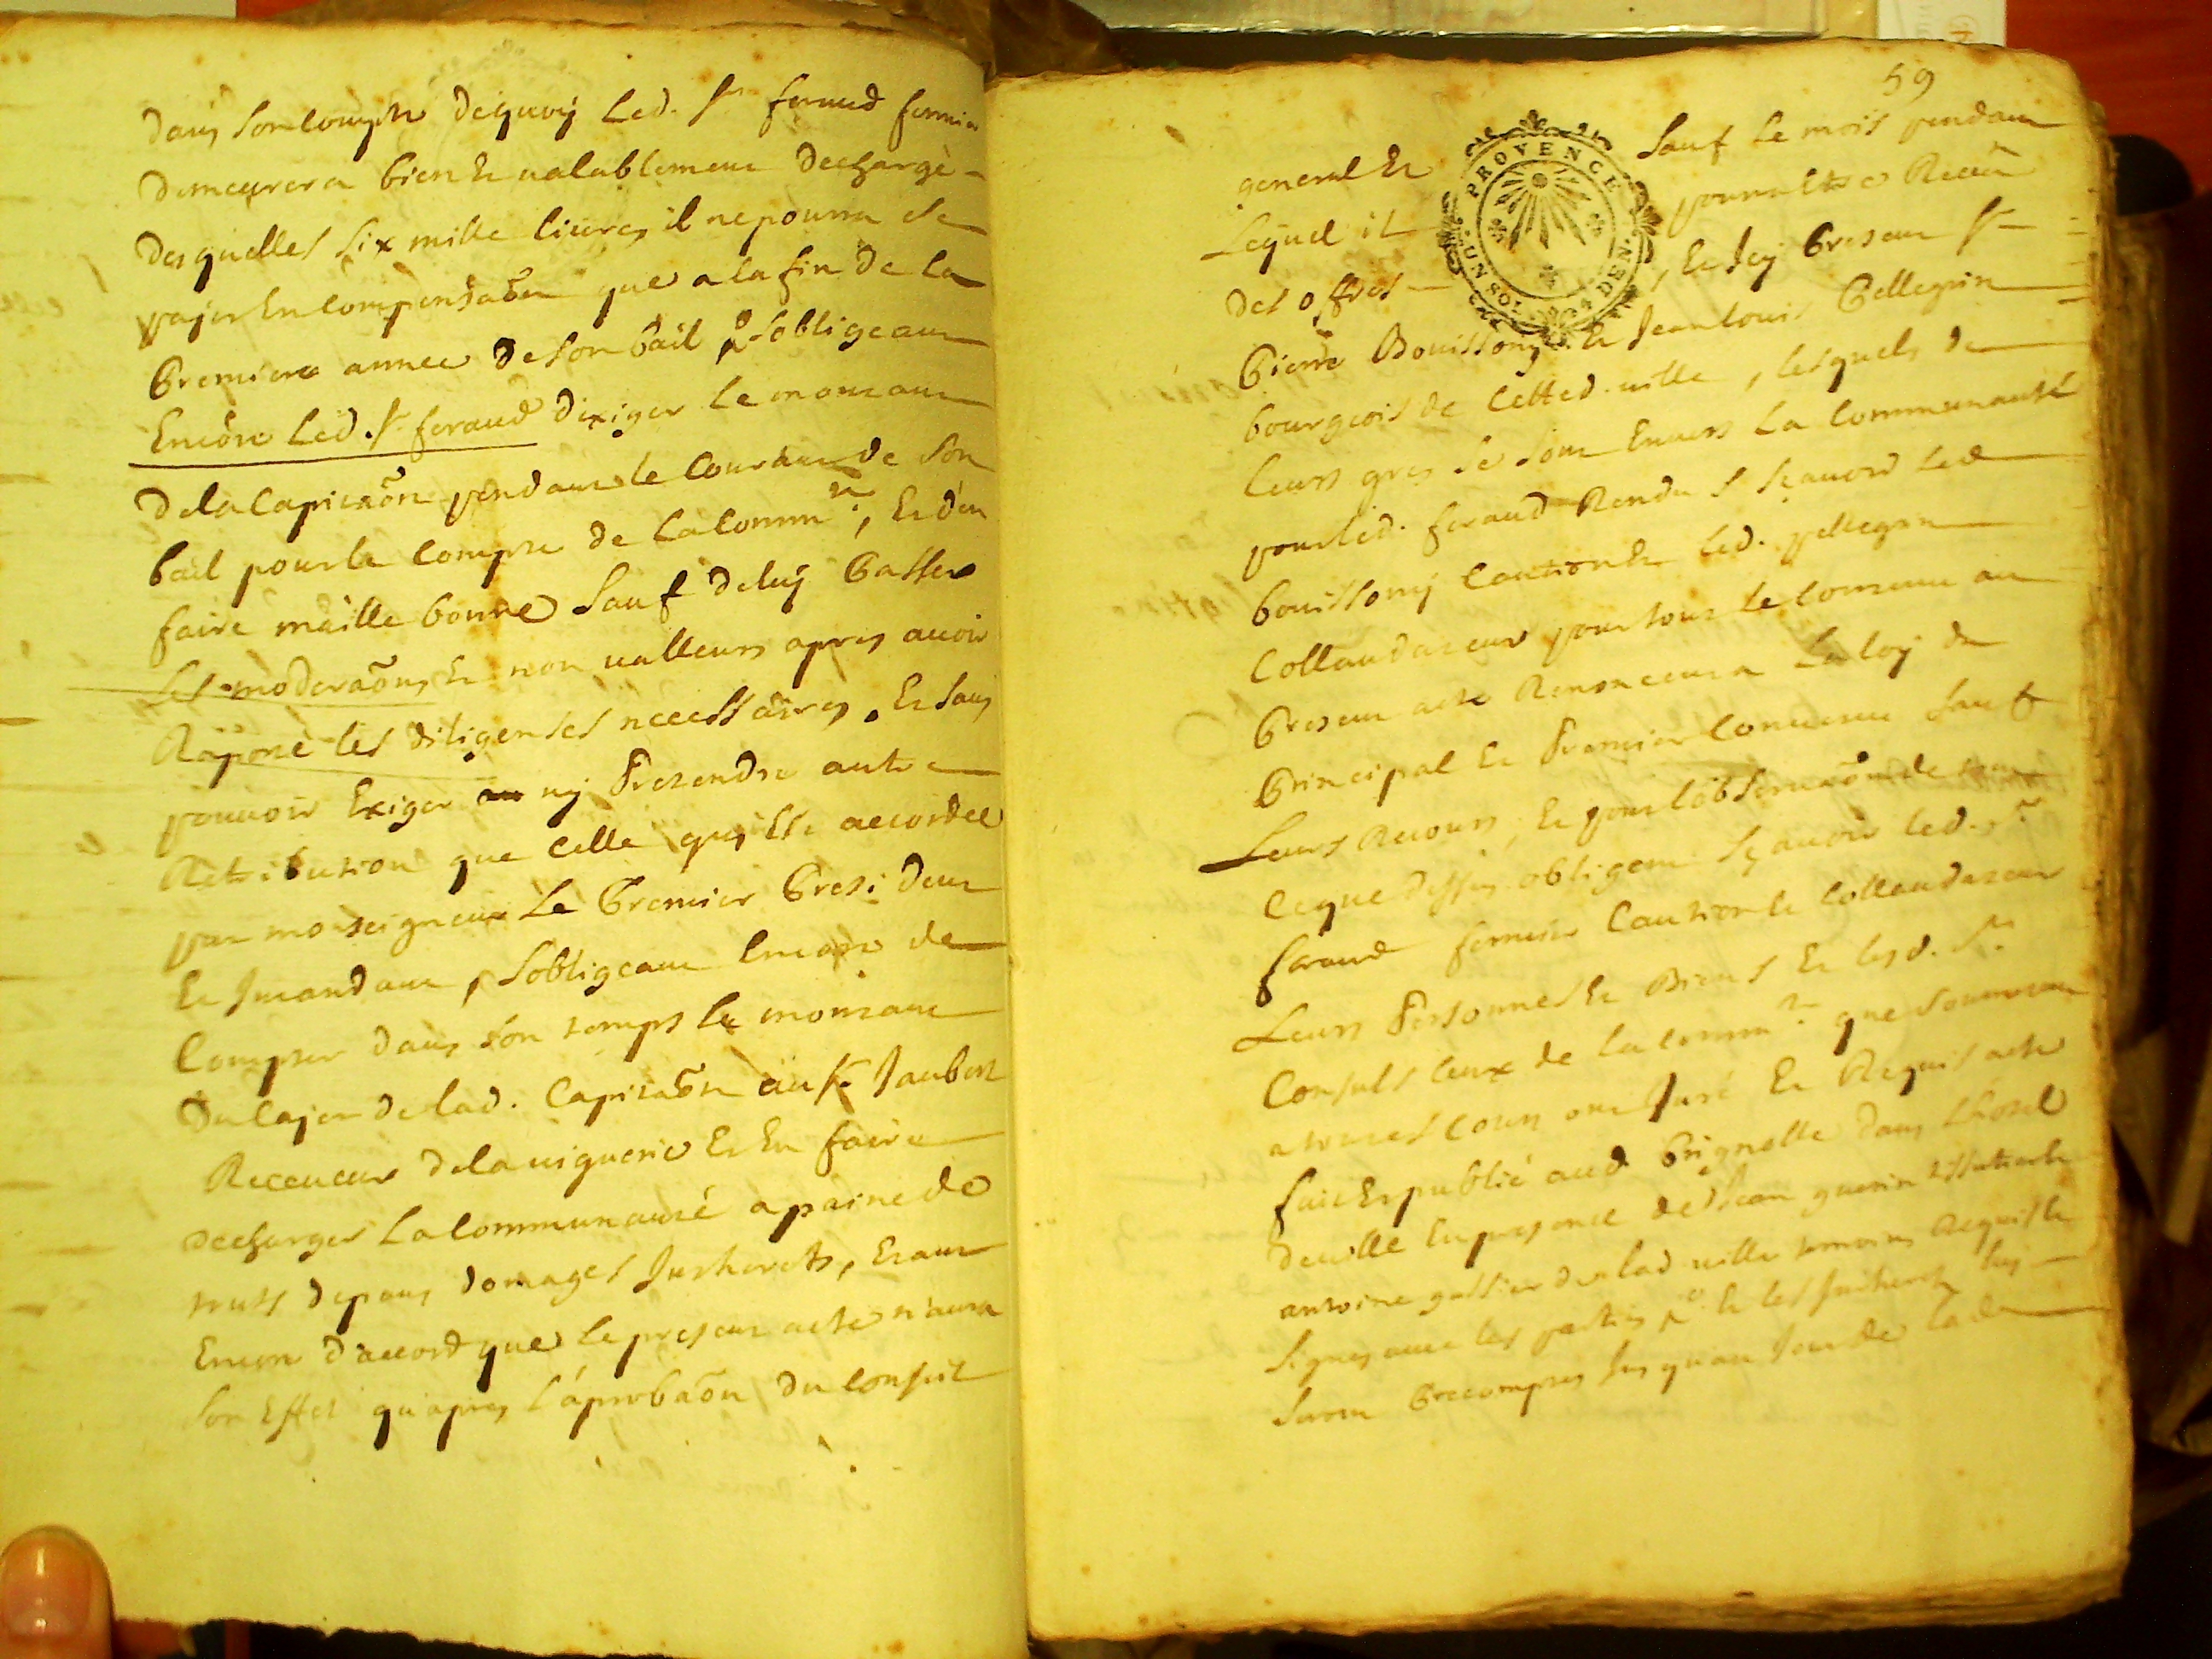 dans son compte dequoy led. Sr feraud fermier
demeurera bien Et ualablement dechargé
desquelles six mille liures il ne pourra Se
payer En compensaõn que a la fin de la
premiere annee de son bail, Sobligeant
Encore led. Sr feraud dexiger le montant
de la Capitaõn pendant le Courant de Son
bail pour le Compte de La Commté, Et den
faire maille bonne Sauf de luy passer
Les moderaõns Et non ualleurs apres auoir
Raporté les diligenses necessaires, Et Sans
pouuoir Exiger ny pretendre autre
Retribution que Celle quy Est accordee
par monseigneur Le premier president
Et Intandant, Sobligeant Encore de
Compter dans son temps le montant
Du Cayer de lad. Capitaõn au Sr Jaubert
Receueur de la uiguerie Et En faire
decharger La Communauté a paine de
touts depans domages Interets, Etant
Encore daccord que le present acte naura
Son Effet quapres Laprobaõn du Conseil
59
general Et Sauf le mois pendant
Lequel il pourra Etre Receu
des offres, Et Icy present Sr
Pierre Bouissony Et Jean louis Pellegrin
bourgeois de Cetted. uille, lesquels de
Leurs gres Se Sont Enuers La Communauté
pour led. feraud Rendus Sçauoir led
bouissony Caution Et led. pellegrin
Collaudateur pour tout le Contenu au
present acte Renonceant a La loy de
principal Et premier Conuenu Sauf
Leurs Recours, Et pour lobseruaõn de
Ceque dessus obligent Sçauoir led. Sr
feraud fermier Caution Et Collaudateur
Leurs personnes Et Biens Et lesd. Srs
Consuls Ceux de la Commté que Soumettent
a toutes Cours ont Juré Et Requis acte
fait Et publié aud Brignolle dans Lhotel
de uille En presence de Jean guerin Et
antoine gassier de lad uille temoins Requis Et
Signes auec les parties Et les Interets
Seront precomptes Jusquau Jour de
PROVENCE
UN SOL 4 DEN.